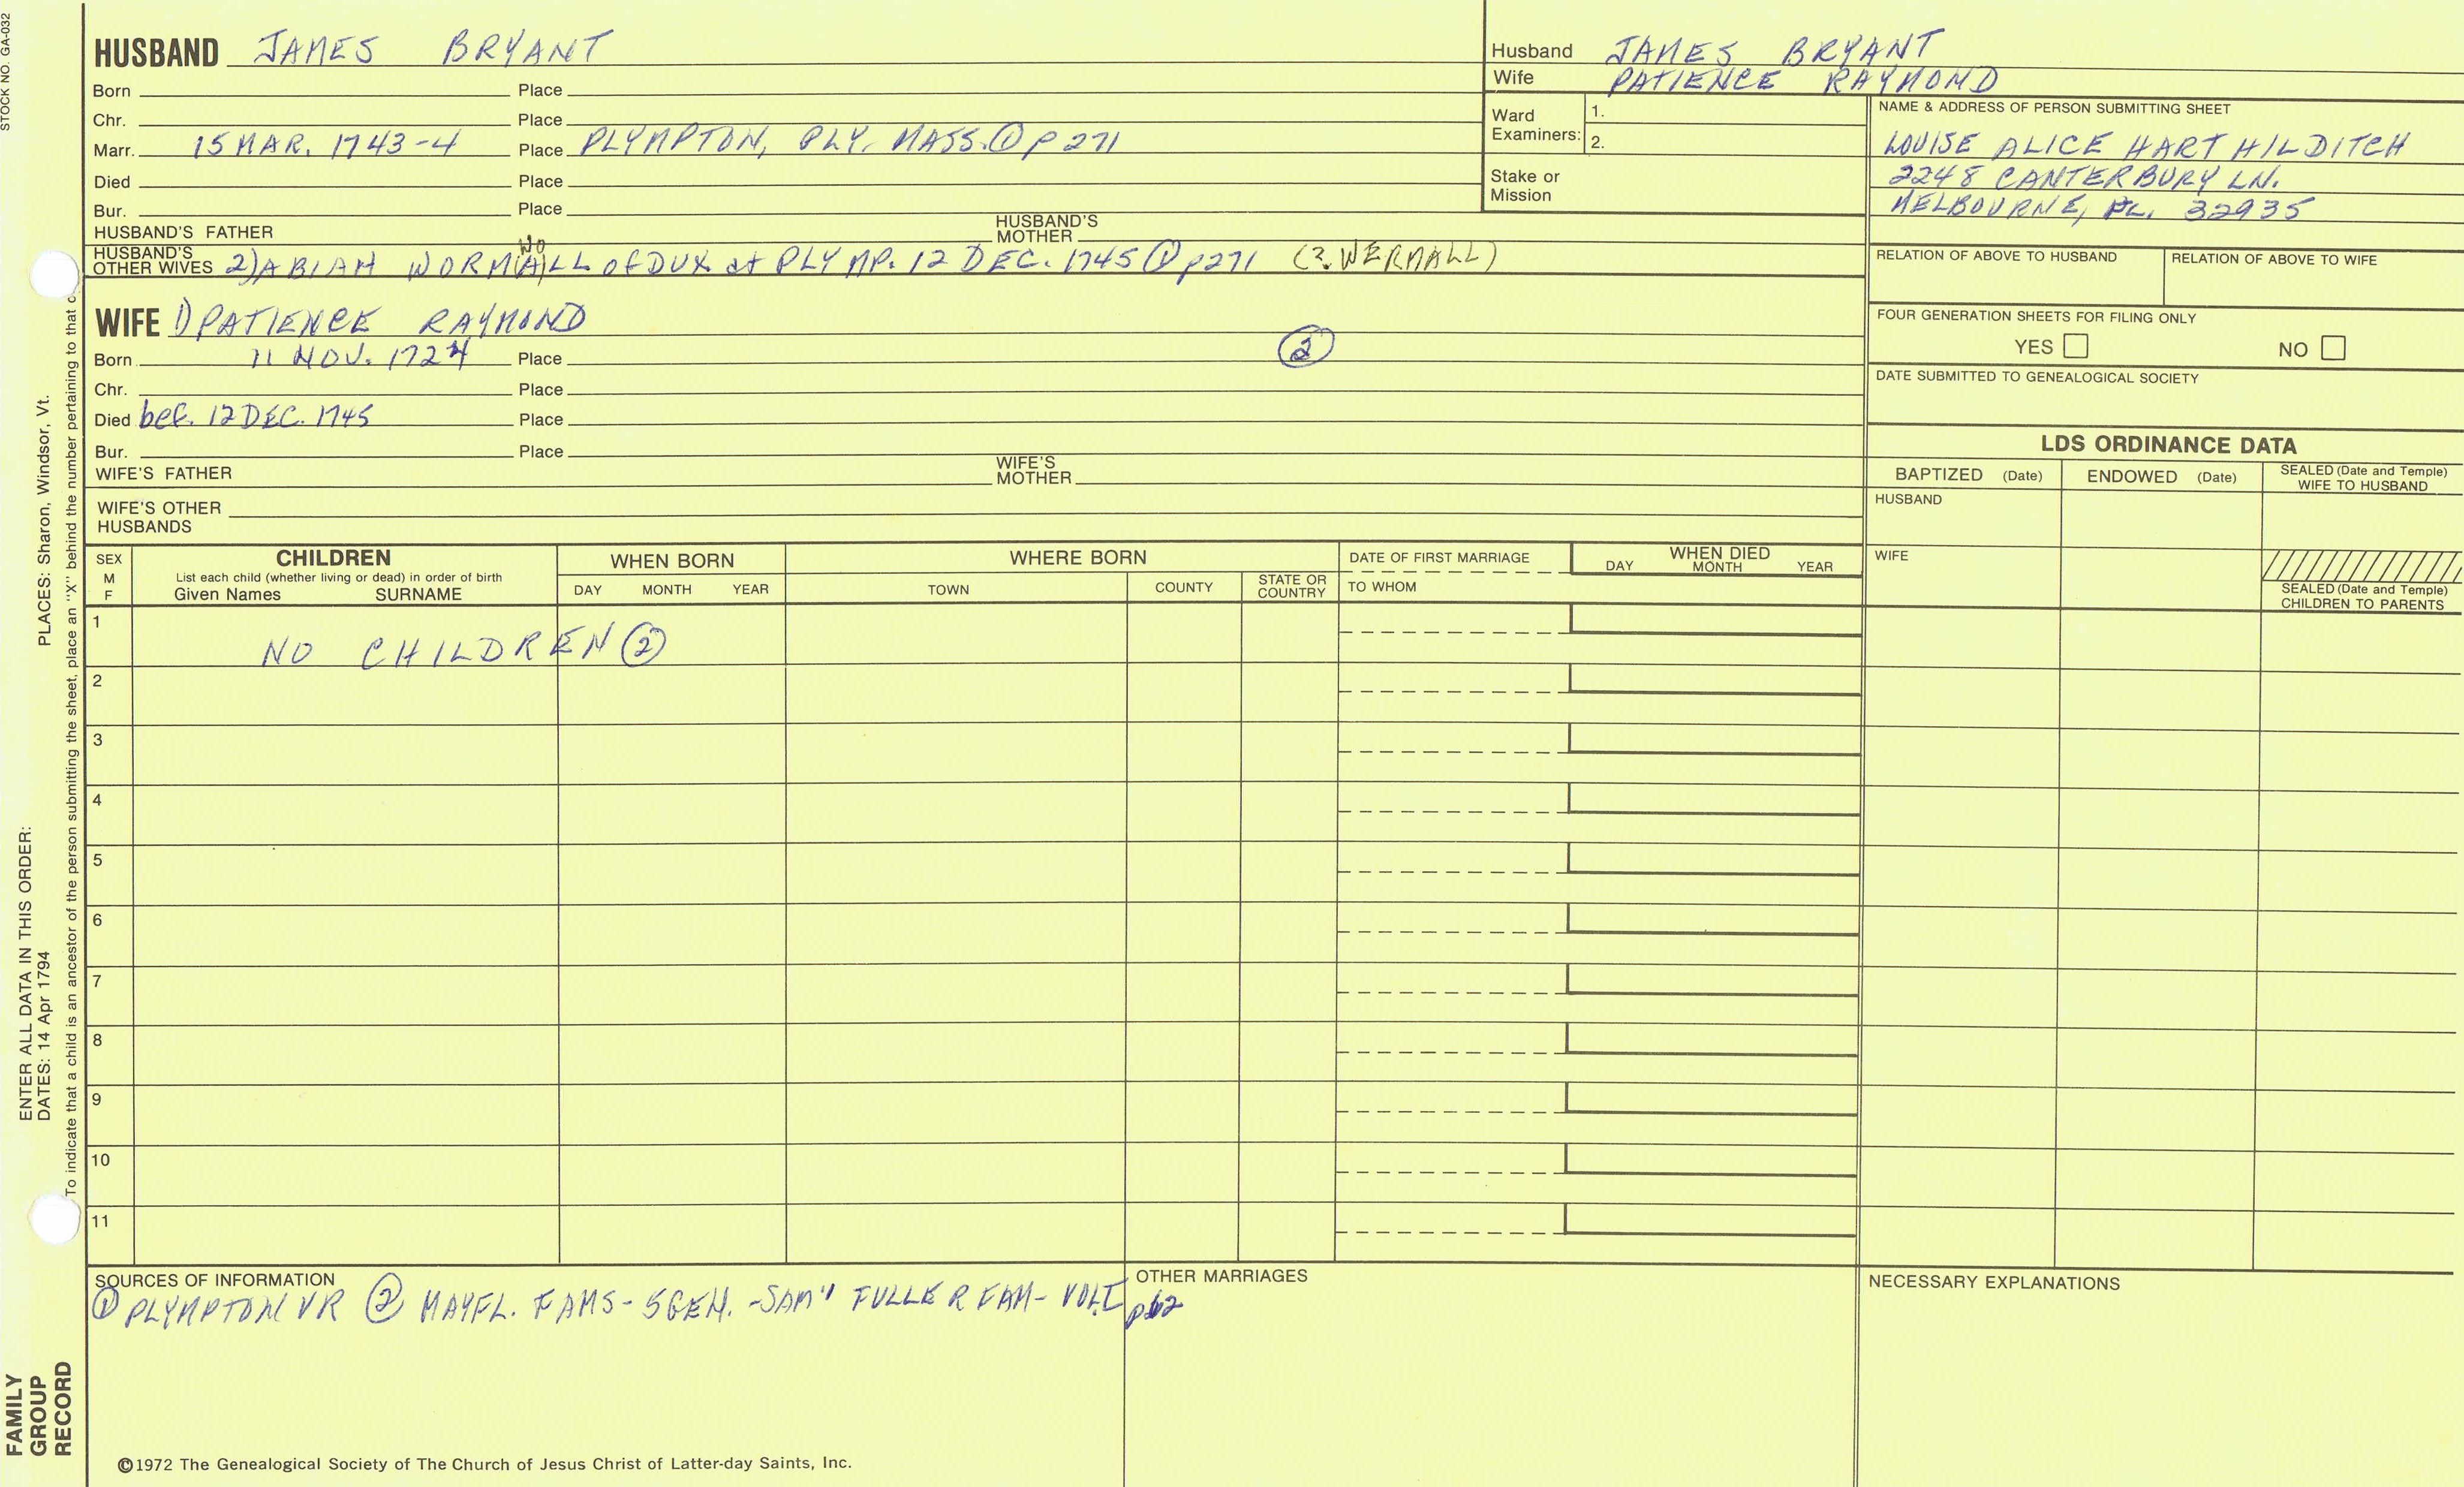 STOCK NO. GA-032
HUSBAND JAMES BRYANT
Born Place
Chr. Place
Marr. 15 MAR. 1743-4 Place PLYMPTON, PLY. MASS. ① p 271
Died Place
Bur. Place
HUSBAND'S FATHER HUSBAND'S MOTHER
HUSBAND'S OTHER WIVES 2) ABIAH WORM(A)LL of DUX at PLYMP. 12 DEC. 1745 ① p271 (? WERMALL)
WO
WIFE 1) PATIENCE RAYMOND
Born 11 NOV. 1724 Place ②
Chr. Place
Died bef. 12 DEC. 1745 Place
Bur. Place
WIFE'S FATHER WIFE'S MOTHER
WIFE'S OTHER HUSBANDS
Husband JAMES BRYANT
Wife PATIENCE RAYMOND
Ward Examiners: 1.
2.
Stake or Mission
NAME & ADDRESS OF PERSON SUBMITTING SHEET
LOUISE ALICE HART HILDITCH
2248 CANTERBURY LN.
MELBOURNE, FL. 32935
RELATION OF ABOVE TO HUSBAND RELATION OF ABOVE TO WIFE
FOUR GENERATION SHEETS FOR FILING ONLY
YES NO
DATE SUBMITTED TO GENEALOGICAL SOCIETY
LDS ORDINANCE DATA
BAPTIZED (Date) ENDOWED (Date) SEALED (Date and Temple) WIFE TO HUSBAND
HUSBAND
WIFE
SEALED (Date and Temple) CHILDREN TO PARENTS
SEX M F
CHILDREN
List each child (whether living or dead) in order of birth
Given Names SURNAME
WHEN BORN
DAY MONTH YEAR
WHERE BORN
TOWN COUNTY STATE OR COUNTRY
DATE OF FIRST MARRIAGE
TO WHOM
WHEN DIED
DAY MONTH YEAR
1 NO CHILDREN ②
2
3
4
5
6
7
8
9
10
11
SOURCES OF INFORMATION
① PLYMPTON VR ② MAYFL. FAMS - 5 GEN. - SAM'l FULLER FAM - VOL. I
OTHER MARRIAGES
NECESSARY EXPLANATIONS
©1972 The Genealogical Society of The Church of Jesus Christ of Latter-day Saints, Inc.
ENTER ALL DATA IN THIS ORDER:
DATES: 14 Apr 1794 PLACES: Sharon, Windsor, Vt.
To indicate that a child is an ancestor of the person submitting the sheet, place an "X" behind the number pertaining to that
FAMILY
GROUP
RECORD